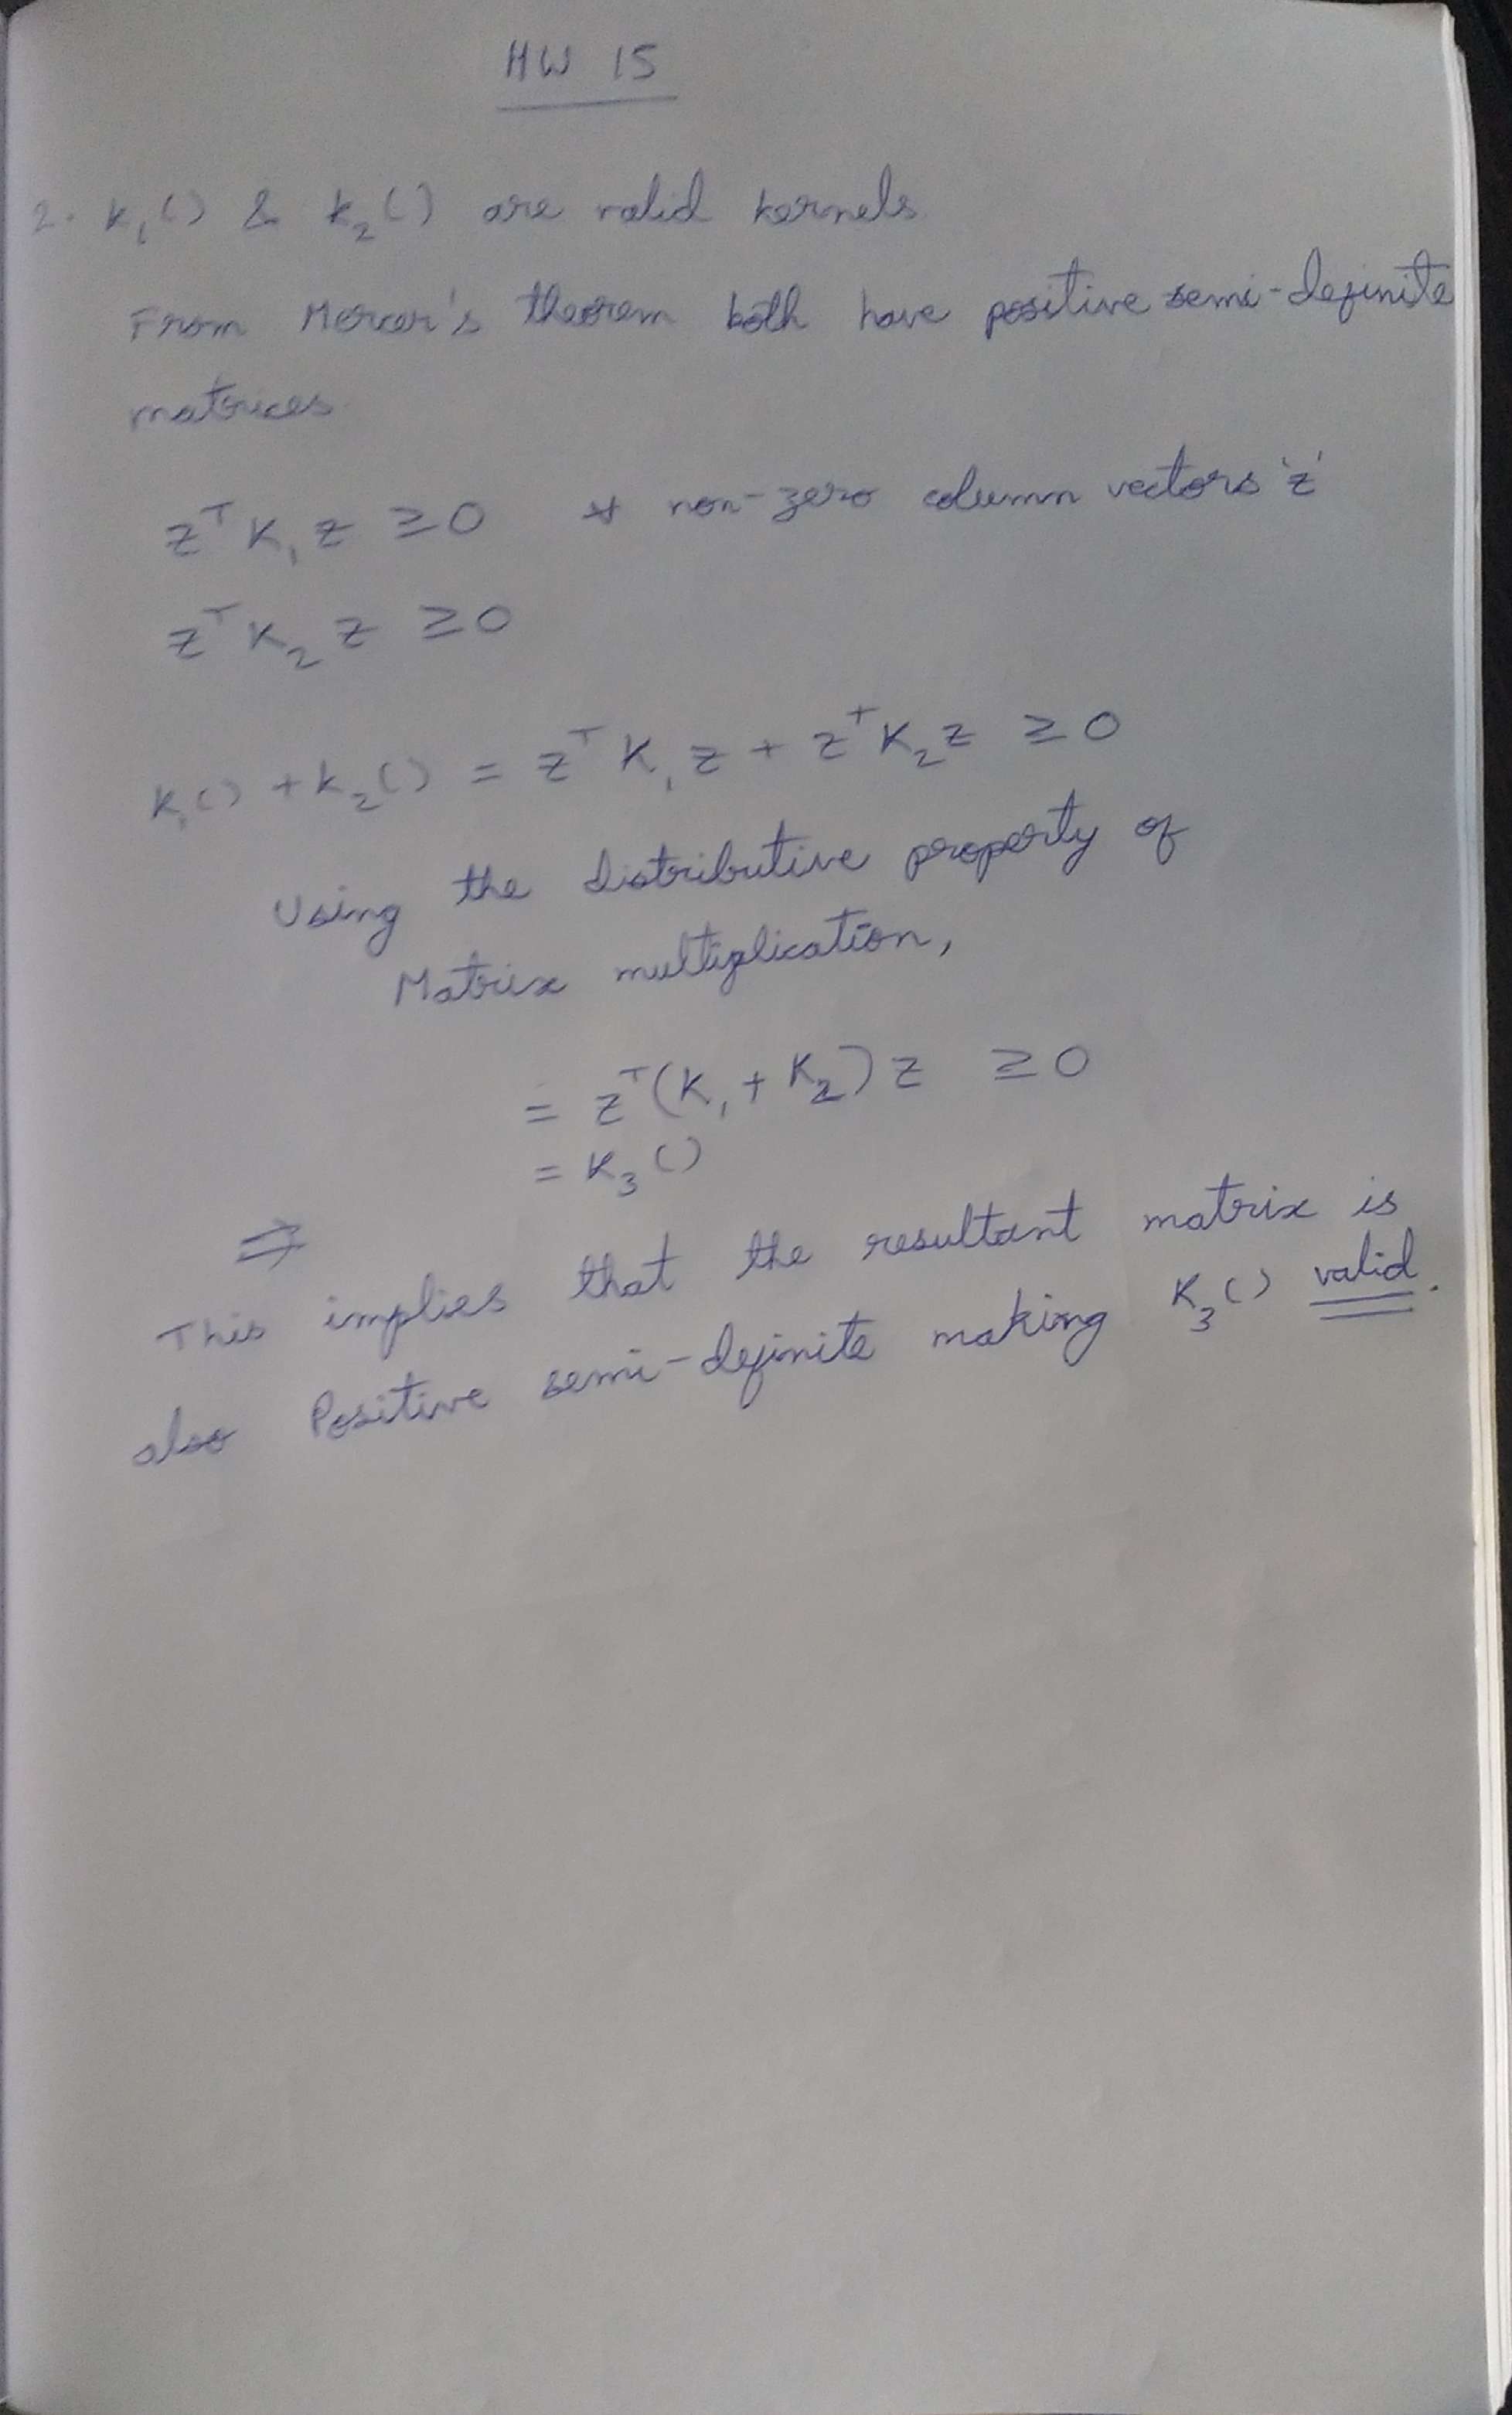 HW 15
2. K₁() & k₂() are valid kernels.
From Mercer's theorem both have positive semi-definite
matrices.
zᵀ K₁ z ≥ 0 ∀ non-zero column vectors 'z'
zᵀ K₂ z ≥ 0
K₁() + k₂() = zᵀ K₁ z + zᵀ K₂ z ≥ 0
Using the distributive property of
Matrix multiplication,
= zᵀ (K₁ + K₂) z ≥ 0
= K₃ ()
⇒
This implies that the resultant matrix is
also Positive semi-definite making K₃() valid.